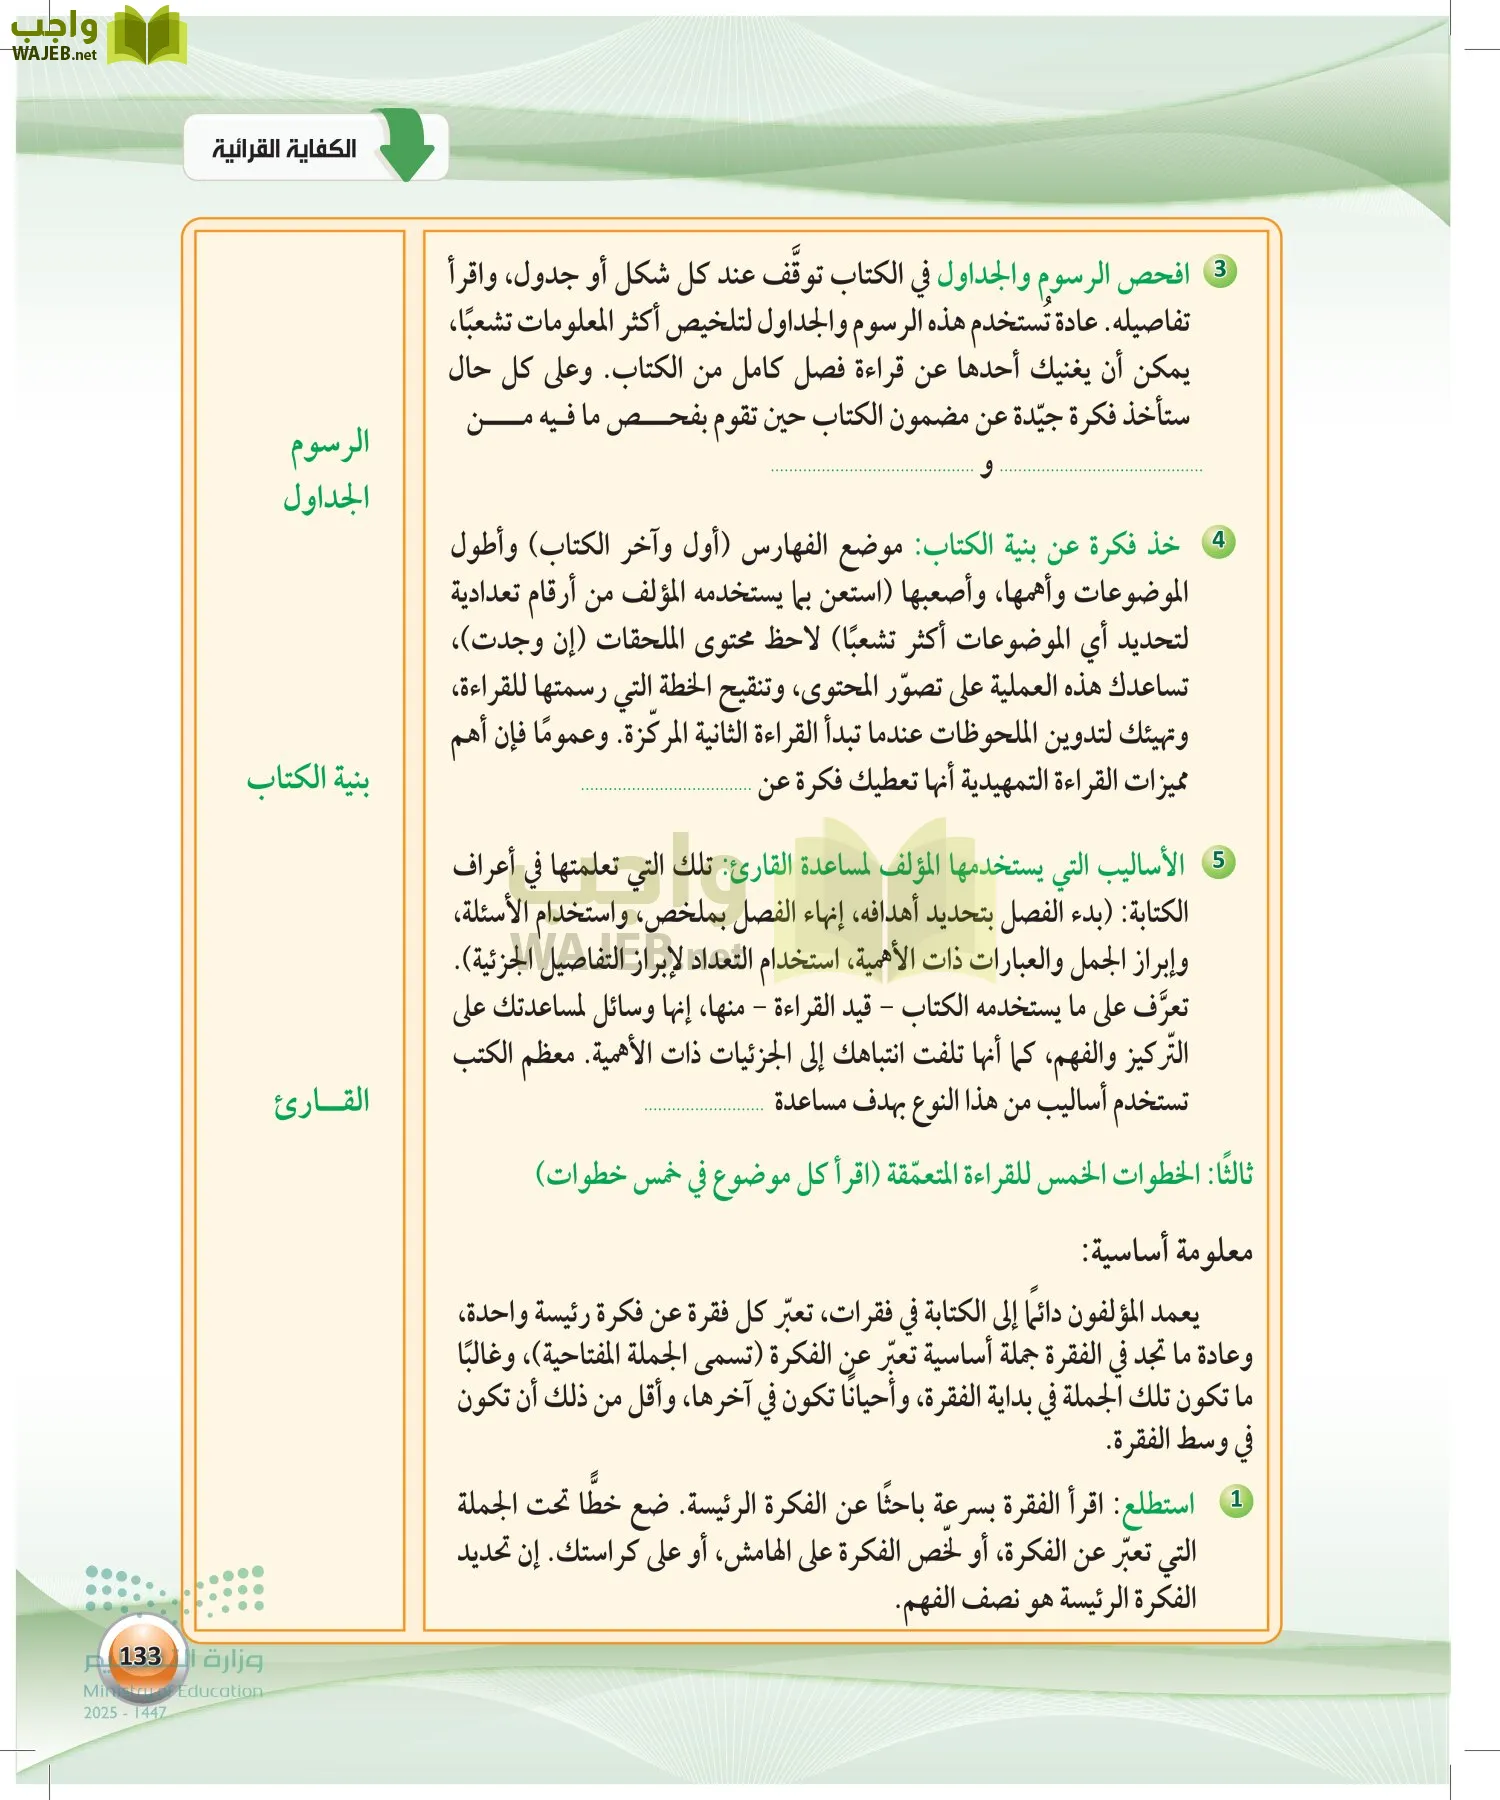 واجب
WAJEB.net
الكفاية القرائية
3 افحص الرسوم والجداول في الكتاب توقَّف عند كل شكل أو جدول، واقرأ
تفاصيله. عادة تُستخدم هذه الرسوم والجداول لتلخيص أكثر المعلومات تشعبًا،
يمكن أن يغنيك أحدها عن قراءة فصل كامل من الكتاب. وعلى كل حال
ستأخذ فكرة جيّدة عن مضمون الكتاب حين تقوم بفحـــــص ما فـيه مـــــن
........................................... و ...........................................
الرسوم
الجداول
4 خذ فكرة عن بنية الكتاب: موضع الفهارس (أول وآخر الكتاب) وأطول
الموضوعات وأهمها، وأصعبها (استعن بما يستخدمه المؤلف من أرقام تعدادية
لتحديد أي الموضوعات أكثر تشعبًا) لاحظ محتوى الملحقات (إن وجدت)،
تساعدك هذه العملية على تصوّر المحتوى، وتنقيح الخطة التي رسمتها للقراءة،
وتهيئك لتدوين الملحوظات عندما تبدأ القراءة الثانية المركّزة. وعمومًا فإن أهم
مميزات القراءة التمهيدية أنها تعطيك فكرة عن ....................................
بنية الكتاب
5 الأساليب التي يستخدمها المؤلف لمساعدة القارئ: تلك التي تعلمتها في أعراف
الكتابة: (بدء الفصل بتحديد أهدافه، إنهاء الفصل بملخص، واستخدام الأسئلة،
وإبراز الجمل والعبارات ذات الأهمية، استخدام التعداد لإبراز التفاصيل الجزئية).
تعرَّف على ما يستخدمه الكتاب – قيد القراءة – منها، إنها وسائل لمساعدتك على
التّركيز والفهم، كما أنها تلفت انتباهك إلى الجزئيات ذات الأهمية. معظم الكتب
تستخدم أساليب من هذا النوع بهدف مساعدة .........................
القـــارئ
واجب
WAJEB.net
ثالثًا: الخطوات الخمس للقراءة المتعمّقة (اقرأ كل موضوع في خمس خطوات)
معلومة أساسية:
يعمد المؤلفون دائمًا إلى الكتابة في فقرات، تعبّر كل فقرة عن فكرة رئيسة واحدة،
وعادة ما تجد في الفقرة جملة أساسية تعبّر عن الفكرة (تسمى الجملة المفتاحية)، وغالبًا
ما تكون تلك الجملة في بداية الفقرة، وأحيانًا تكون في آخرها، وأقل من ذلك أن تكون
في وسط الفقرة.
1 استطلع: اقرأ الفقرة بسرعة باحثًا عن الفكرة الرئيسة. ضع خطًّا تحت الجملة
التي تعبّر عن الفكرة، أو لخّص الفكرة على الهامش، أو على كراستك. إن تحديد
الفكرة الرئيسة هو نصف الفهم.
133
وزارة التعليم
Ministry of Education
2025 - 1447